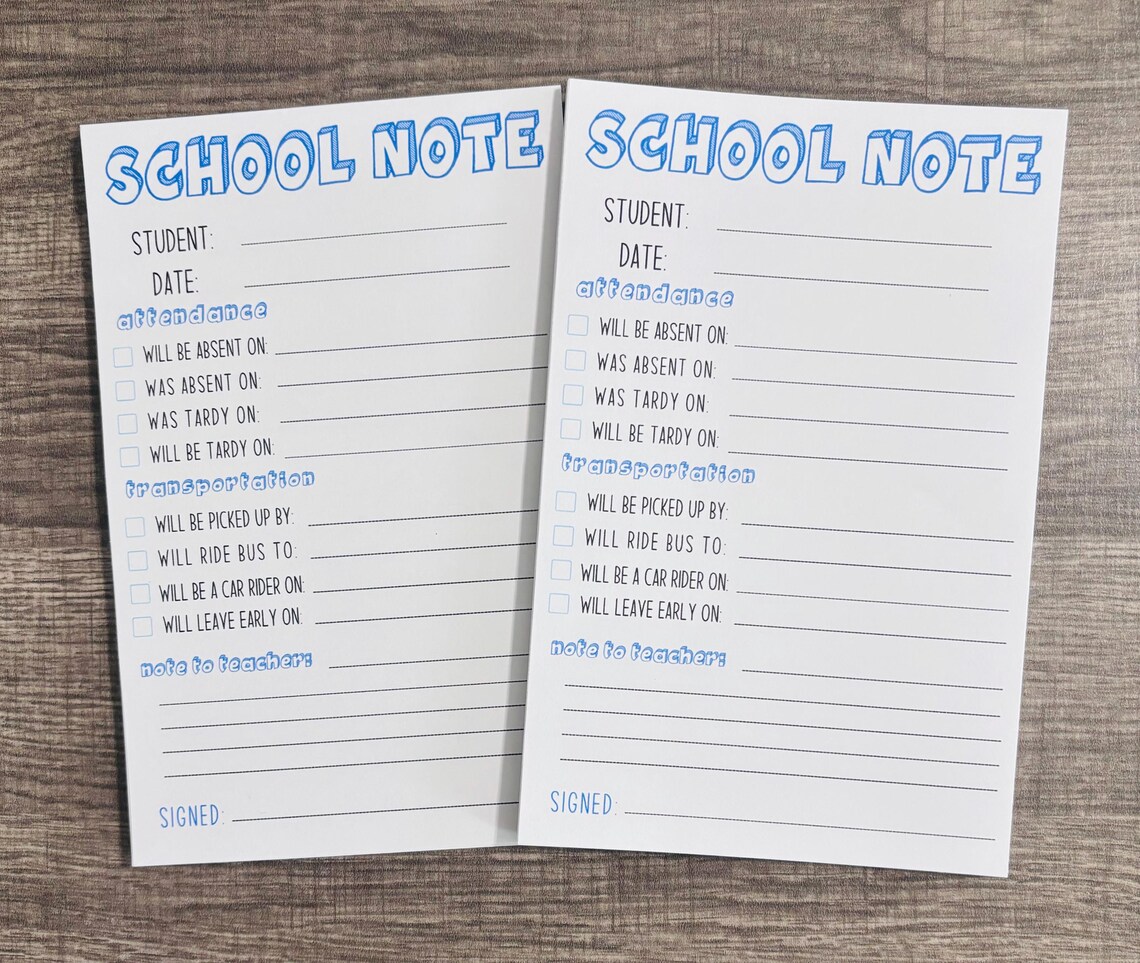 SCHOOL NOTE
STUDENT:
DATE:
attendance
WILL BE ABSENT ON:
WAS ABSENT ON:
WAS TARDY ON:
WILL BE TARDY ON:
transportation
WILL BE PICKED UP BY:
WILL RIDE BUS TO:
WILL BE A CAR RIDER ON:
WILL LEAVE EARLY ON:
note to teacher:
SIGNED:
SCHOOL NOTE
STUDENT:
DATE:
attendance
WILL BE ABSENT ON:
WAS ABSENT ON:
WAS TARDY ON:
WILL BE TARDY ON:
transportation
WILL BE PICKED UP BY:
WILL RIDE BUS TO:
WILL BE A CAR RIDER ON:
WILL LEAVE EARLY ON:
note to teacher:
SIGNED: